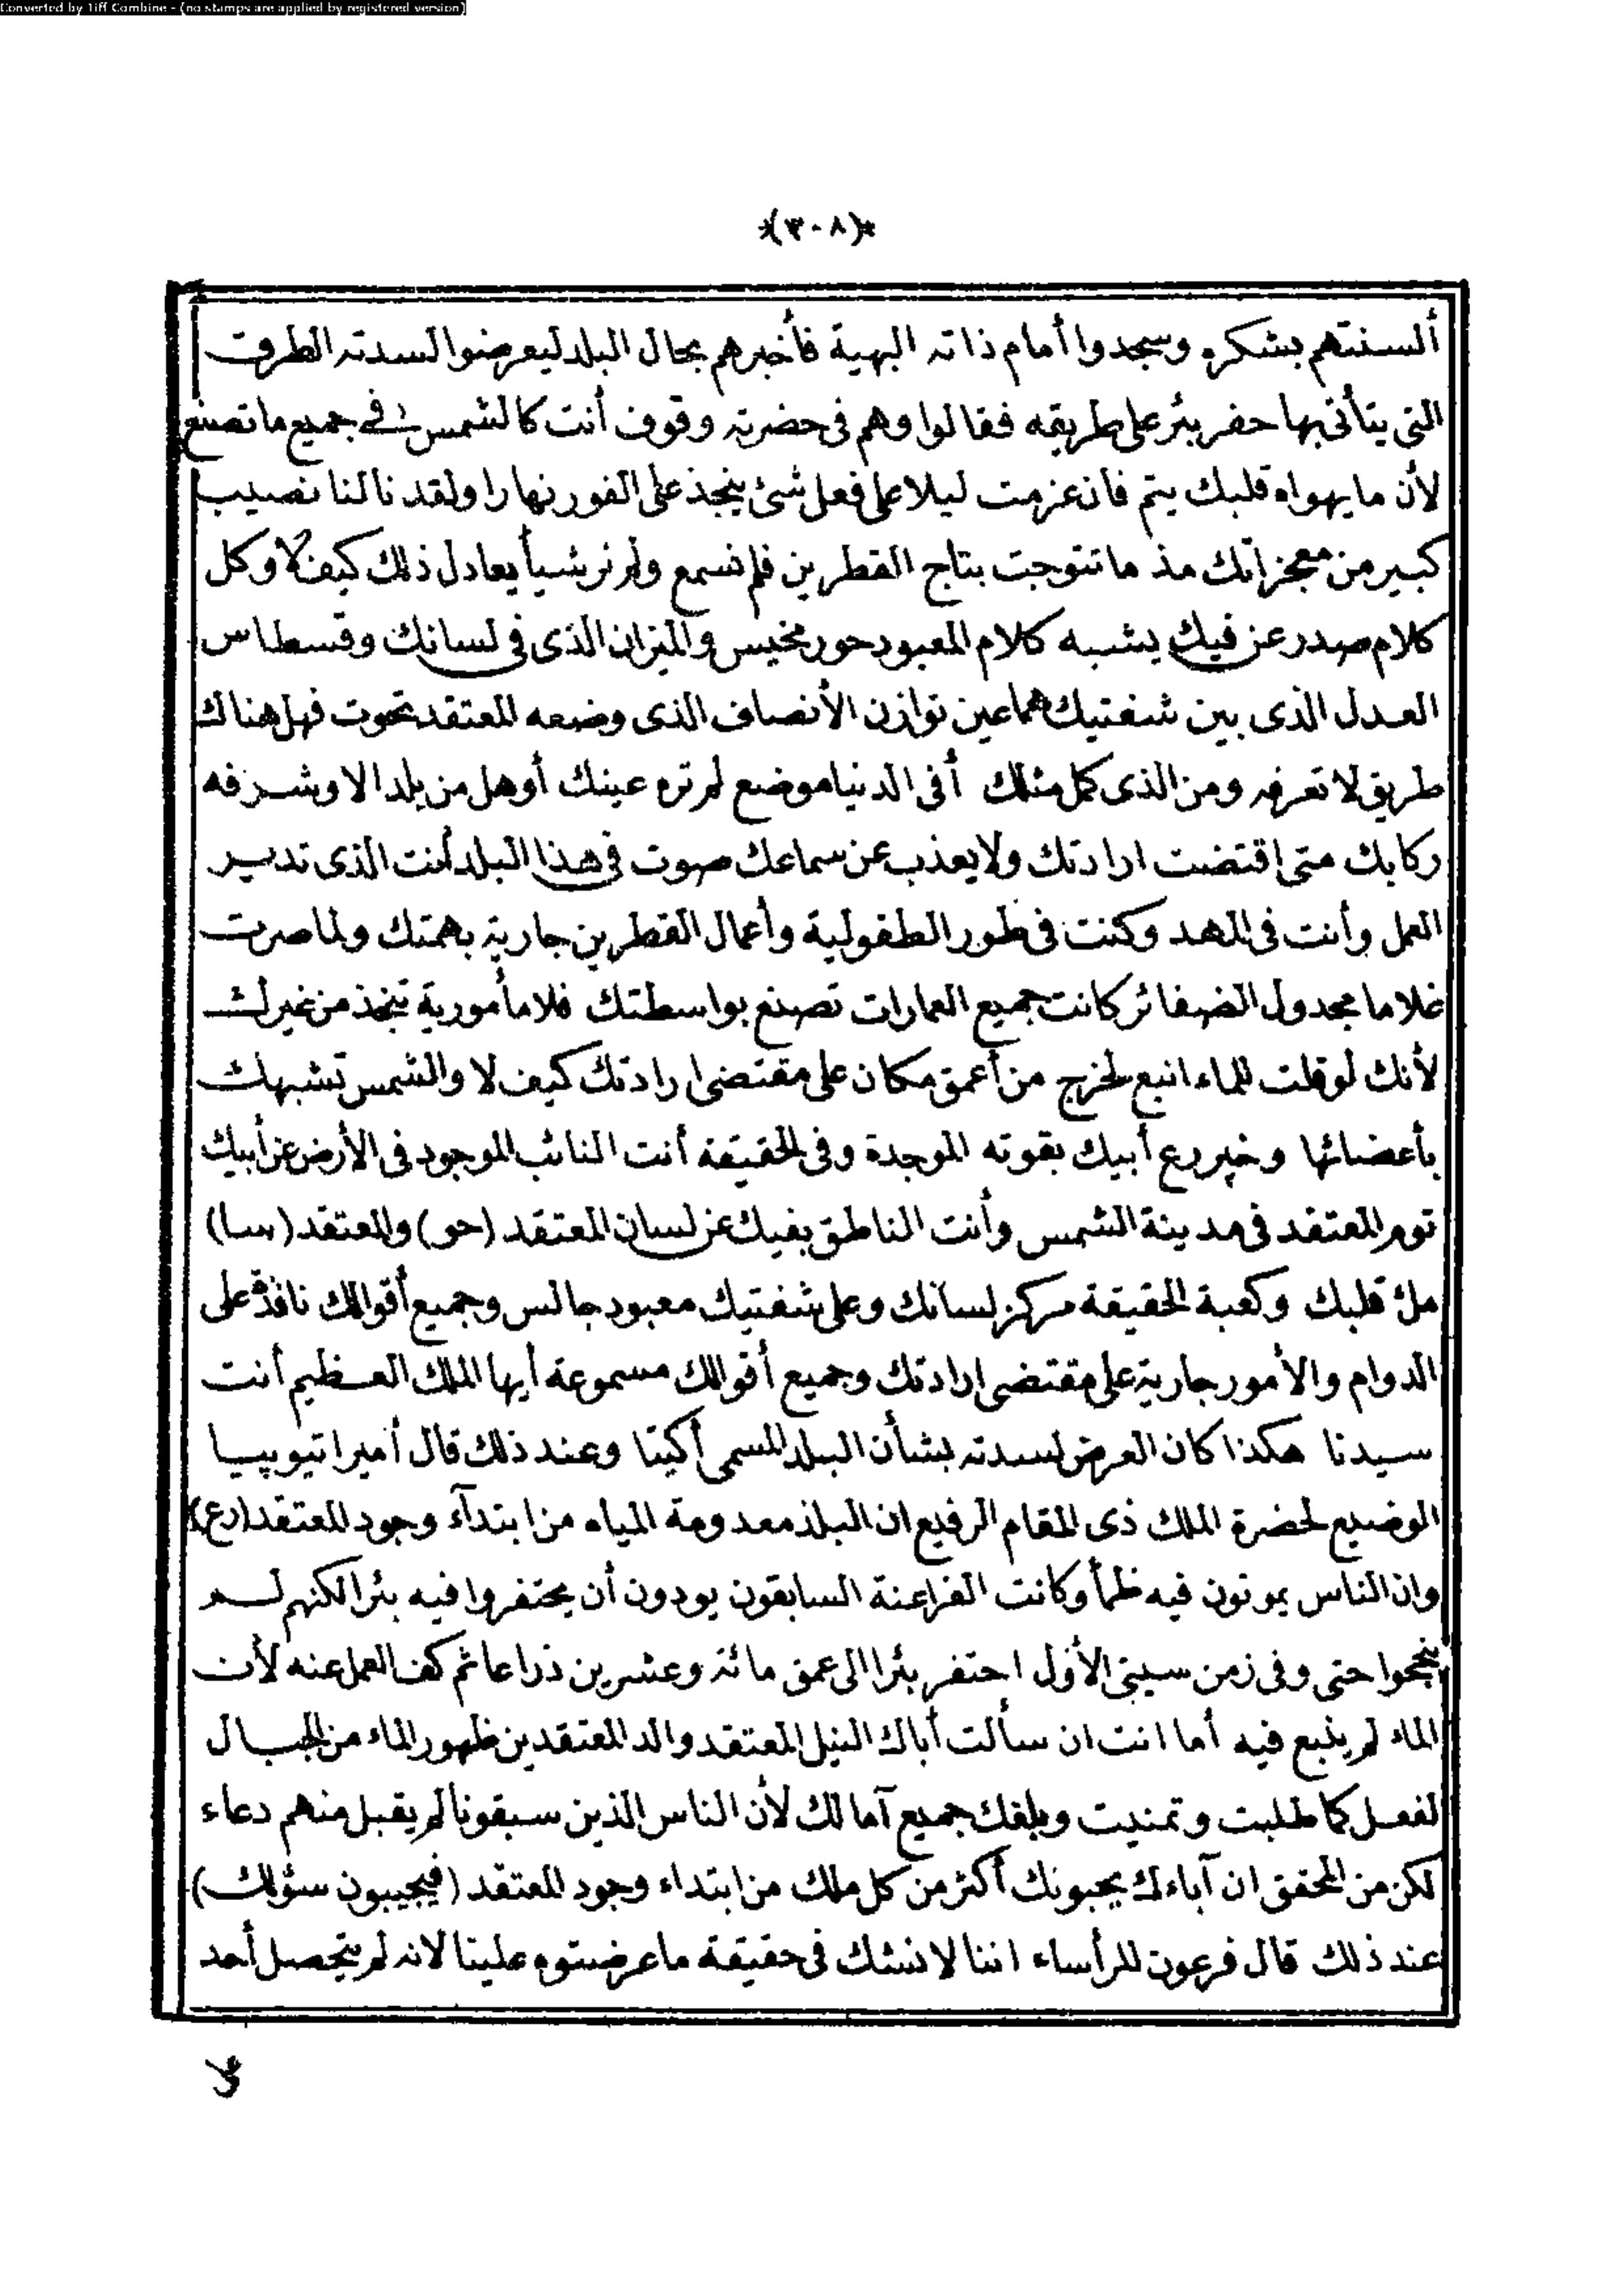 Converted by Tiff Combine - (no stamps are applied by registered version)
*(٣٠٨)*
ألسنتهم بشكره وسجدوا أمام ذاته البهية فأخبرهم بحال البلد ليعرضوا لسدته الطرق
التى يتأتى بها حفر بئر على طريقه فقالوا وهم فى حضرته وقوف أنت كالشمس فى جميع ما تصنع
لأن ما يهواه قلبك يتم فان عزمت ليلا على فعل شئ ينجز على الفور نهارا ولقد نالنا نصيب
كبير من معجزاتك مذ ما تتوجت بتاج القطرين فلم نسمع ولم نر شيأ يعادل ذلك كيف لا وكل
كلام صدر عن فيك يشبه كلام المعبود حور مخيس والميزان الذى فى لسانك وقسطاس
العدل الذى بين شفتيك هما عين توازن الأنصاف الذى وضعه المعتقد تحوت فهل هناك
طريق لا تعرفه ومن الذى كمل مثلك أفى الدنيا موضع لم تره عينك أو هل من بلد الا وشرفه
ركابك متى اقتضت ارادتك ولا يعذب عن سماعك صوت فى هذا البلد أنت الذى تدير
العمل وأنت فى المهد وكنت فى طور الطفولية وأعمال القطرين جارية بهمتك ولما صرت
غلاما مجدول الضفائر كانت جميع العمارات تصنع بواسطتك فلا مأمورية تتخذ من غيرك
لأنك لو قلت للماء انبع لخرج من أعمق مكان على مقتضى ارادتك كيف لا والشمس تشبهك
بأعضائها وخپر رع أبيك بقوته الموجدة وفى الحقيقة أنت النائب الموجود فى الأرض عن أبيك
توم المعتقد فى مدينة الشمس وأنت الناطق بفيك عن لسان المعتقد (حو) والمعتقد (سا)
ملء قلبك وكعبة الحقيقة مركز لسانك وعلى شفتيك معبود جالس وجميع أقوالك نافذة على
الدوام والأمور جارية على مقتضى ارادتك وجميع أقوالك مسموعة أيها الملك العظيم أنت
سيدنا هكذا كان العرض لسدته بشأن البلد المسمى أكيتا وعند ذلك قال أمير اتيوپيا
الوضيع لحضرة الملك ذى المقام الرفيع ان البلد معدومة المياه من ابتدآء وجود المعتقد (رع)
وان الناس يموتون فيه ظمأ وكانت الفراعنة السابقون يودون أن يحتفروا فيه بئرا لكنهم لم
ينجحوا حتى وفى زمن سيتى الأول احتفر بئرا الى عمق مائة وعشرين ذراعا ثم كف العمل عنه لأن
الماء لم ينبع فيه أما انت ان سألت أباك النيل المعتقد والد المعتقدين ظهور الماء من الجبال
لفعل كما طلبت وتمنيت وبلغك جميع آمالك لأن الناس الذين سبقونا لم يقبل منهم دعاء
لكن من المحقق ان آباءك يحبونك أكثر من كل ملك من ابتداء وجود المعتقد (فيجيبون سؤلك)
عند ذلك قال فرعون للرأساء اننا لا نشك فى حقيقة ما عرضتوه علينا لانه لم يتحصل أحد